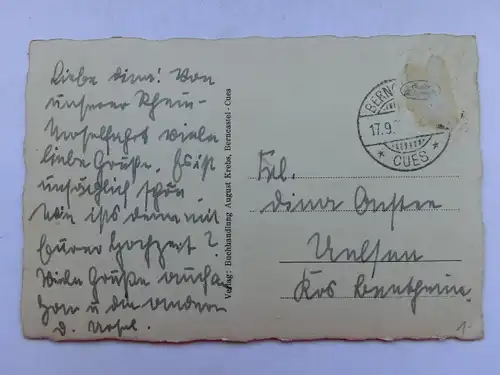 Liebe Dina! Von
unserer Rhein-
Moselfahrt viele
liebe Grüße. Es ist
unsäglich schön.
Wie ists denn mit
Eurer Hochzeit?
Viele Grüße auch an
u die andern
d. Ursel.
Verlag: Buchhandlung August Krebs, Berncastel-Cues
BERNC
17.9.
* CUES *
Frl.
Dina
Uelsen
Krs Bentheim
1-